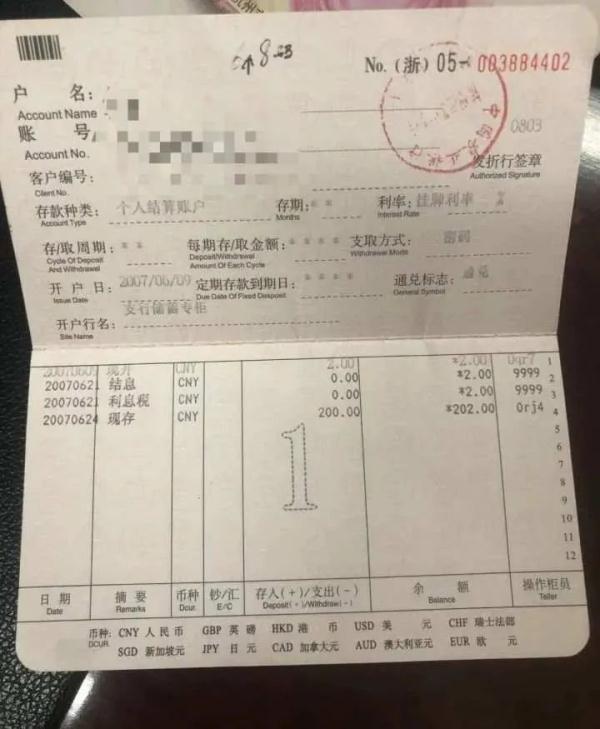 No. (浙) 05- 003884402
户 名:
Account Name
账 号
Account No.
0803
客户编号:
Client No.
发折行签章
Authorized Signature
存款种类: 个人结算账户 存期: ** 利率: 挂牌利率
Account Type Months Interest Rate
存/取周期: ** 每期存/取金额: **** 支取方式: 密码
Cycle Of Deposit And Withdrawal Deposit/Withdrawal Amount Of Each Cycle Withdrawal Mode
开 户 日: 2007/06/09 定期存款到期日: **** 通兑标志: 通兑
Issue Date Due Date Of Fixed Desposit General Symbol
开户行名: 支行储蓄专柜
Site Name
20070609 现开 CNY 2.00 *2.00 0qr7 1
20070621 结息 CNY 0.00 *2.00 9999 2
20070621 利息税 CNY 0.00 *2.00 9999 3
20070624 现存 CNY 200.00 *202.00 0rj4 4
5
6
7
8
9
10
11
12
1
日 期 摘 要 币种 钞/汇 存入(+)/支出(-) 余 额 操作柜员
Date Remarks Dcur. E/C Deposit(+)/Withdraw(-) Balance Teller
币种: CNY 人民币 GBP 英 镑 HKD 港 币 USD 美 元 CHF 瑞士法郎
DCUR. SGD 新加坡元 JPY 日 元 CAD 加拿大元 AUD 澳大利亚元 EUR 欧 元